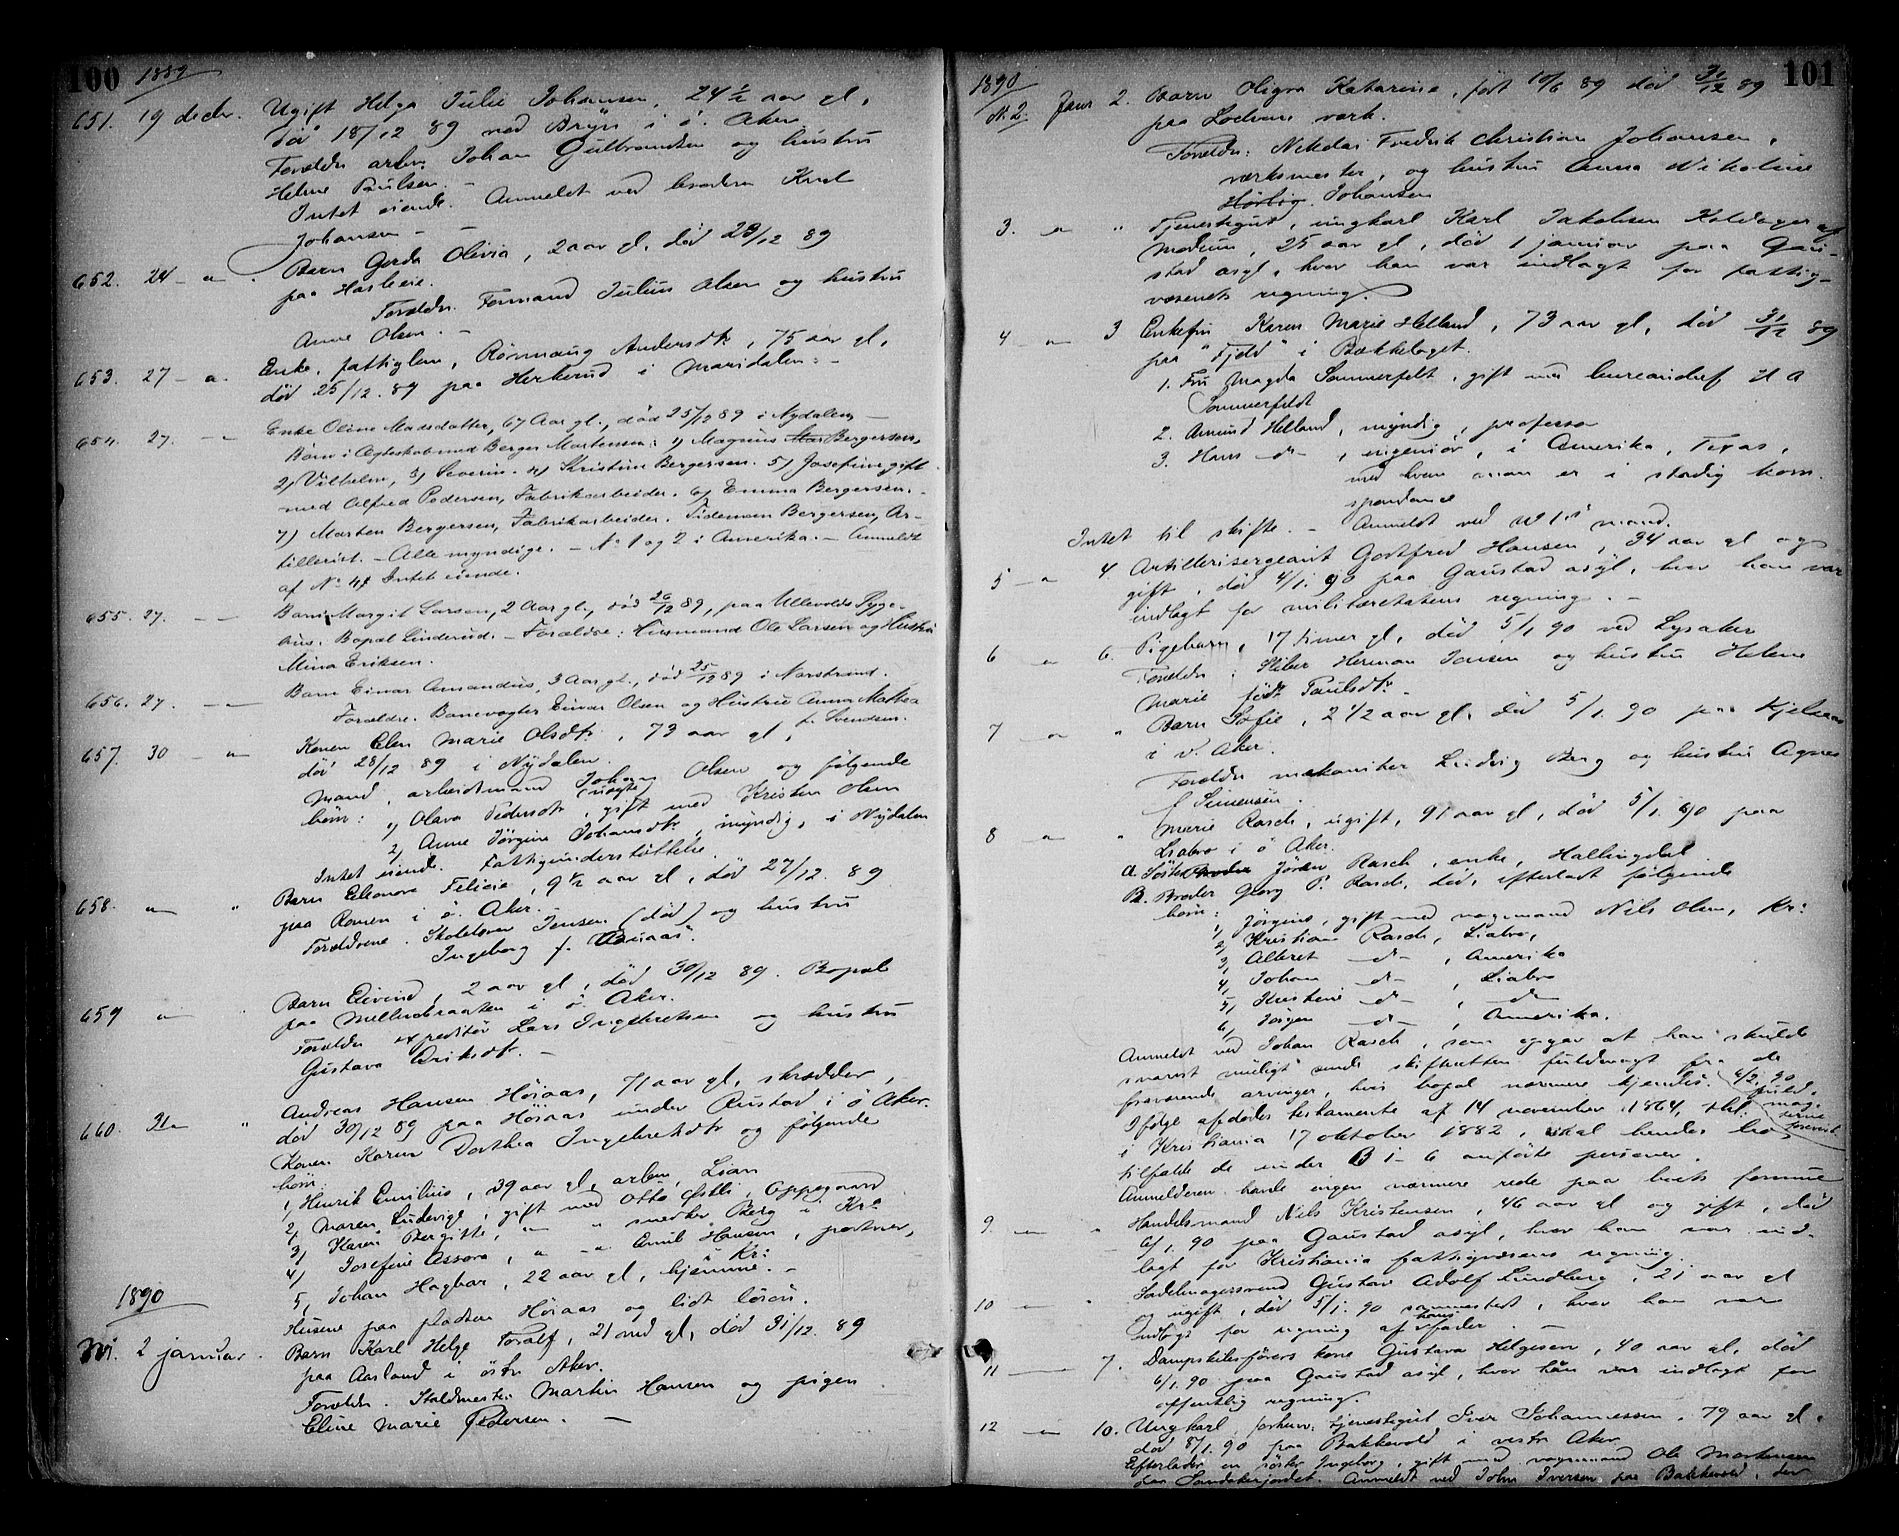 100 1889
651. 19 decbr. Ugift Helga Julie Johansen, 24 1/2 aar gl,
død 18/12 89 ved Bryn i ø. Aker
Forældre arbm. Johan Gulbrandsen og hustru
Helene Paulsen. -
Intet eiende. Anmeldt ved broderen Karl
Johansen - -
652. 24 - " . Barn Gerda Olivia, 2 aar gl. død 23/12 89
paa Hasleie.
Forældre. Formand Julius Olsen og hustru
Anne Olsen. -
653. 27 - " . Enke, fattiglem, Rønnaug Andersdtr, 75 aar gl,
død 25/12. 89 paa Herkerud i Maridalen. -
654. 27. - - Enke Oline Madsdatter, 67 Aar gl., død 25/12 89 i Nydalen, -
Børn i Ægteskab med Berger Martensen: 1) Magnus Mar Bergersen,
2) Vilhelm, 3) Severin. 4) Kristine Bergersen. 5) Josefine gift
med Alfred Pedersen, Fabrikarbeider. 6) Emma Bergersen. -
7) Marten Bergersen, Fabrikarbeider. Tideman Bergersen, Ar-
tillerist. - Alle myndige. - No 1 og 2 i Amerika. - Anmeldt
af No 4. Intet eiende.
655. 27. - - Barn Margit Larsen, 2 Aar gl., død 26/12 89, paa Ullevolds Syge-
hus. Bopæl Linderud. - Forældre: Husmand Ole Larsen og Hustru
Mina Eriksen.
656. 27. - - Barn Einar Amandus, 3 Aar gl., død 25/12 89 i Norstrand.
Forældre. Banevogter Einar Olsen og Hustru Anna Mathea
f. Svendsen.
657. 30 - " Konen Elen Marie Olsdtr. , 73 aar gl,
død 28/12 89 i Nydalen.
Mand, arbeidsmand Johan Olsen og følgende
børn: 1) Olava Pedersdtr (uægte), gift med Kristen Olsen
2) Anne Jørgine Johansdtr, myndig, i Nydalen
Intet eiende. Fattigunderstøttelse.
658. " " Barn Eleonora Felicie, 9 1/2 aar gl, død 27/12. 89
paa Romen i ø. Aker. -
Forældrene. Skolelærer Jensen (død) og hustru
Ingeborg f.
659 " " Barn Eivind, 2 aar gl, død 30/12 89. Bopæl
paa Mellembraaten i ø. Aker.
Forældre expeditør Lars Ingebretsen og hustru
Gustava Eriksdtr. -
660. 31 " Andreas Hansen Høiaas, 71 aar gl, skrædder,
død 30/12 89 paa Høiaas under Rustad i ø Aker.
Kone. Karen Dorthea Ingebretsdtr og følgende
børn:
1, Henrik Emilius, 39 aar gl, arbm, Lian
2, Maren Ludevige, gift med Otto Østli, Oppegaard
3, Karen Bergitte, " " smed Berg i Kra
4, Josefine Assora, " " Emil Hansen, portner,
i Kr:
5, Johan Hagbar, 22 aar gl, hjemme. -
Husene paa pladsen Høiaas og lidt løsøre.
1890
No 1. 2 januar. Barn Karl Helge Toralf, 21 md gl, død 31/12. 89
paa Aasland i østr. Aker.
Forældre. Staldmester Martin Hansen og pigen
Eline Marie Pedersen. -
1890 101
No 2. Janr 2. Barn Signe Katarine, født 10/6 89 død 31/12 89
paa Lodvens værk.
Forældre: Nikolai Fredrik Christian Johansen,
værksmester, og hustru Anna Nikoline
Hørbig. Johansen
3. - " " Tjenestegut, ungkarl Karl Jakobsen Koldager af
Modum, 25 aar gl, død 1 januar paa Gau-
stad asyl, hvor han var indlagt for fattig-
væsenets regning.
4 - " - 3 Enkefru Karen Marie Helland, 73 aar gl, død 31/12 89
paa "Fjeld" i Bækkelaget.
1. Fru Magda Sommerfeldt, gift med bureauchef H A
Sommerfeldt
2. Amund Helland, myndig, professor
3. Hans do - , ingeniør, i Amerika, Texas,
med hvem man er i stadig korre-
spondance
Intet til skifte. - Anmeldt ved No 1s mand.
5 - " 4. Artillerisergeant Gottfred Hansen, 34 aar gl og
gift, død 4/1. 90 paa Gaustad asyl, hvor han var
indlagt for militæretatens regning. -
6 " 6. Pigebarn, 17 timer gl, død 5/1 90 ved Lysaker
Forældre: Sliber Herman Jensen og hustru Helene
Marie født Paulsdtr. -
7 - " - " Barn Sofie, 2 1/2 aar gl, død 5/1. 90 paa Kjelsaas
i v. Aker.
Forældre mekaniker Ludvig Berg og hustru Agnes
f Simensen.
8 " " Marie Rasch, ugift, 91 aar gl, død 5/1. 90 paa
Liabro i ø Aker.
A. Søster Jøran Rasch, enke, Hallingdal
B. Broder Georg P. Rasch, død, efterladt følgende
børn:
1, Jørgine, gift med vognmand Nils Olsen, Kr:
2, Kristiane Rasch, Liabro,
3, Albret do - , Amerika
4, Johan do - , Liabro
5, Kristine do - , do
6, Jørgen do - , Amerika.
Anmeldt ved Johan Rasch, som opgav at han skulde
snarest muligt sende skifteretten fuldmagt fra de
fraværende arvinger, hvis bopæl nærmere kjendes. 4/2. 90
fuld-
mag-
terne
forevist.
Ifølge afdødes testamente af 14 november 1864, thl.
i Kristiania 17 oktober 1882, skal hendes bo
tilfalde de under B 1 - 6 anførte personer.
Anmelderen havde ingen nærmere rede paa boets formue
9. - " " Handelsmand Nils Kristensen, 46 aar gl og gift, død
6/1. 90 paa Gaustad asyl, hvor han var ind-
lagt for Kristiania fattigvæsens regning.
10 - " - " Sadelmagersvend Gustav Adolf Lundberg, 21 aar gl
og ugift, død 5/1. 90 sammesteds, hvor han var
indlagt for regning af hans fader. -
11 - 7. Dampskibsførers kone Gustava Helgesen, 40 aar gl, død
6/1. 90 paa Gaustad asyl, hvor hun var indlagt for
offentlig regning.
12 - " - 10. Ungkarl, forhenv. tjenestegut Iver Johannessen, 79 aar gl.
død 8/1. 90 paa Bakkevold i vestr Aker
Efterlader en søster Ingeborg, gift med vognmand Ole Martensen
paa Sandakerjordet. Anmeldt ved John Iversen paa Bakkevold, der